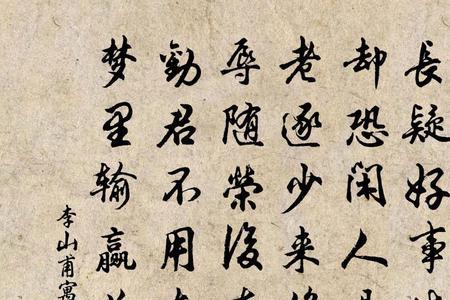 長疑好事
却恐闲人
老逐少来
辱随榮後
勸君不用
梦里输赢
李山甫寓